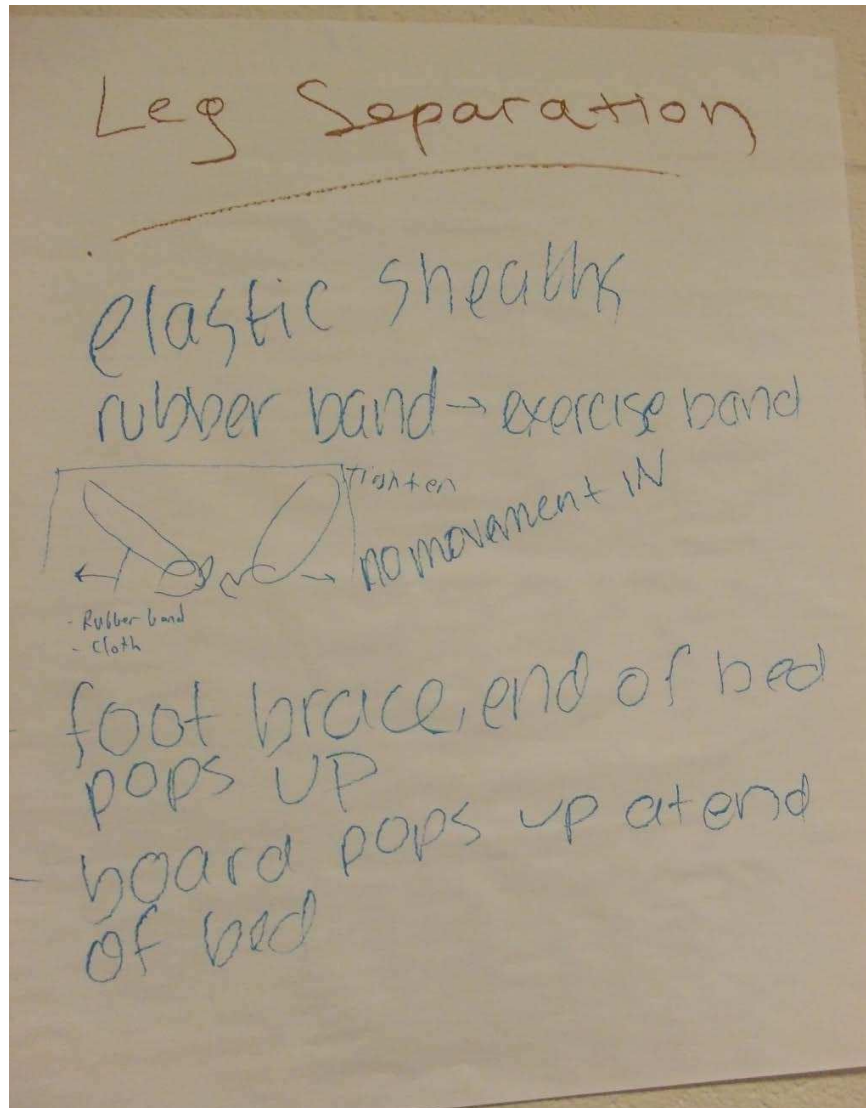 Leg Separation
elastic sheaths
rubber band → exercise band
Tighten
no movement IN
- Rubber band
- cloth
foot brace, end of bed
pops UP
- board pops up at end
of bed